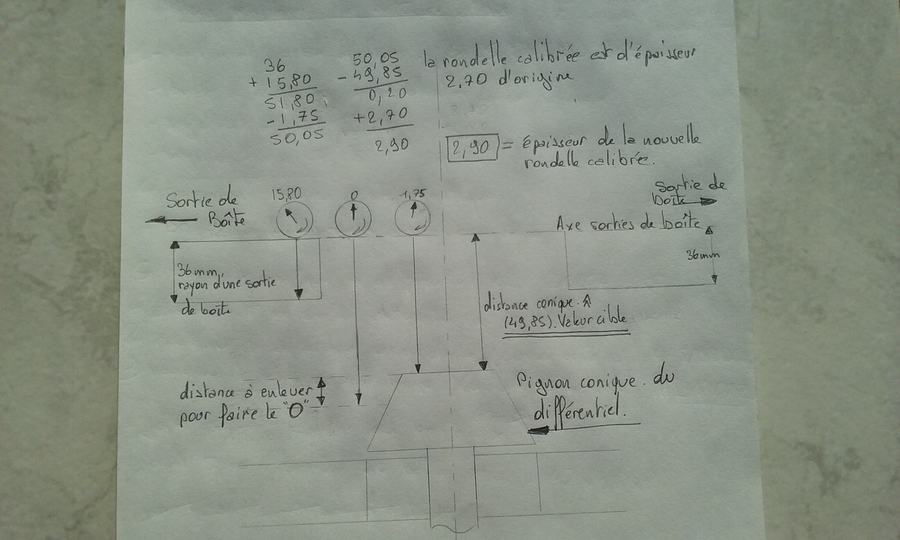 36
+ 15,80
51,80
- 1,75
50,05
50,05
- 49,85
0,20
+ 2,70
2,90
la rondelle calibrée est d'épaisseur
2,70 d'origine
2,90 = épaisseur de la nouvelle
rondelle calibrée.
Sortie de
Boîte
15,80
0
1,75
Sortie de
boîte
Axe sorties de boîte
36mm,
rayon d'une sortie
de boîte
36mm
distance conique
(49,85). Valeur cible
distance à enlever
pour faire le "0"
Pignon conique du
différentiel.